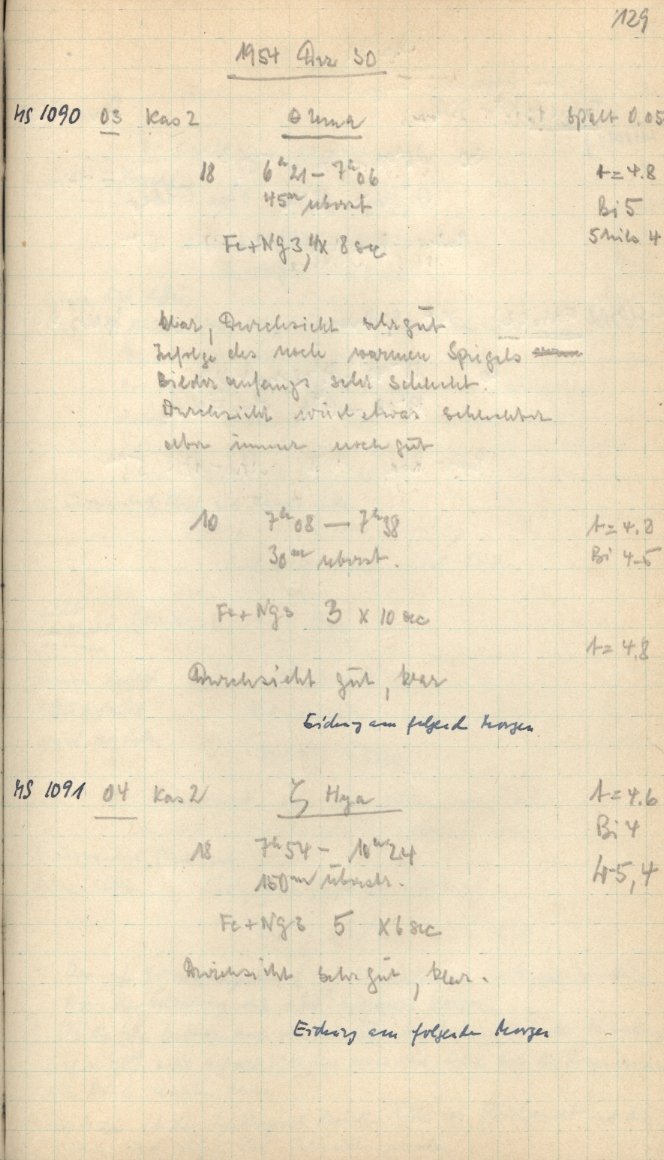 129
1954 Dez 30
MS 1090 03 Kas 2 θ Uma Spalt 0.05
18 6h21 – 7h06 t = 4.8
45m überst Bi 5
Fe+Ng3, 4x 8 sec 4
klar, Durchsicht sehr gut
Infolge des noch warmen Spiegels
Bilder anfangs sehr schlecht.
Durchsicht wird etwas schlechter
aber immer noch gut
10 7h08 — 7h38 t = 4.8
30m überst. Bi 4-5
Fe+Ng3 3 x 10 sec
t = 4.8
Durchsicht gut, klar
Eichung am folgende Morgen
MS 1091 04 Kas 2 ζ Hya t = 4.6
Bi 4
18 7h54 – 10h24
150m überstr. 4-5, 4
Fe+Ng3 5 x 6 sec
Durchsicht sehr gut, klar.
Eichung am folgenden Morgen